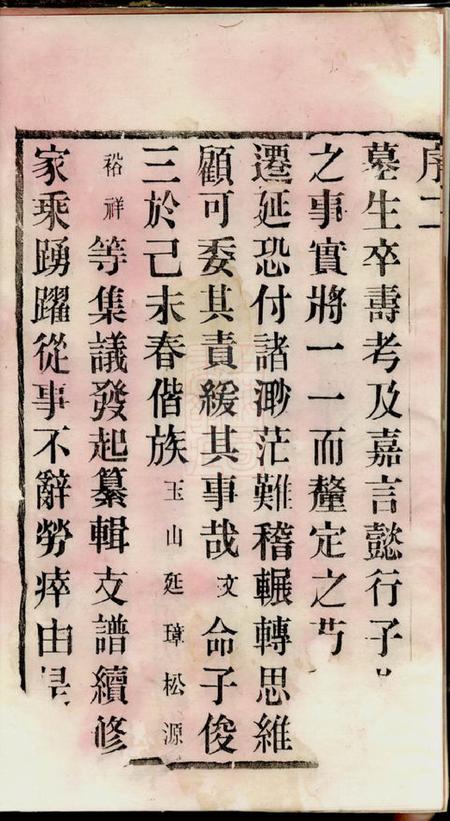 序二
墓生卒壽考及嘉言懿行子
之事實將一一而釐定之
遷延恐付諸渺茫難稽輾轉思維
顧可委其責緩其事哉文命子俊
三於己未春偕族玉山延璋松源
裕祥等集議發起纂輯支譜續修
家乘踴躍從事不辭勞瘁由是